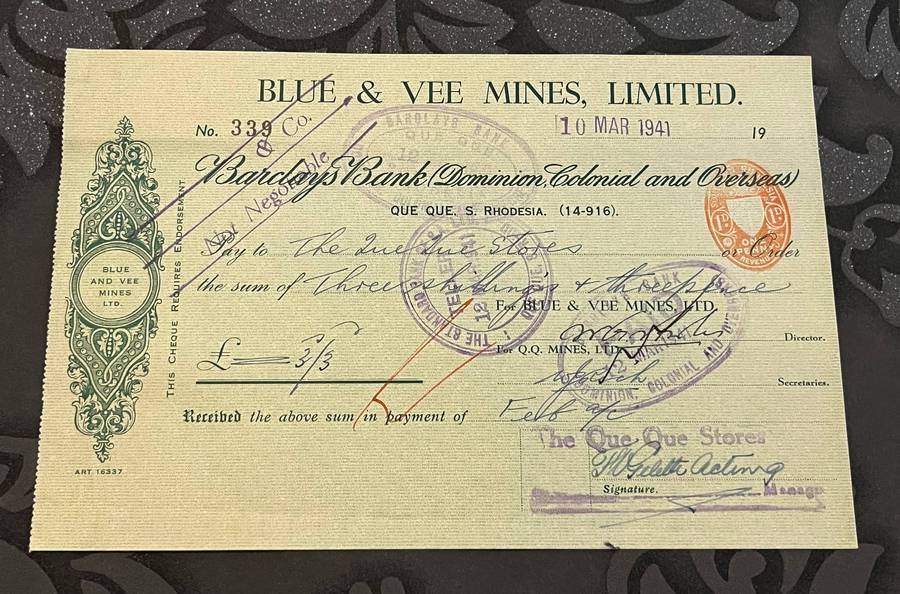 BLUE & VEE MINES, LIMITED.
No. 339
10 MAR 1941 19
& Co.
Not Negotiable
Barclays Bank (Dominion, Colonial and Overseas)
QUE QUE, S. RHODESIA. (14-916).
Pay to The Que Que Stores or Order
the sum of Three shillings & threepence
For BLUE & VEE MINES, LTD.
Director.
£ 3/3
For Q.Q. MINES, LTD.
Secretaries.
Received the above sum in payment of Feb a/c
The Que Que Stores
Acting
Signature. Manage
BLUE
AND VEE
MINES
LTD.
THIS CHEQUE REQUIRES ENDORSEMENT
ART. 16337
BARCLAYS BANK
QUE QUE
THE STANDARD BANK
DOMINION, COLONIAL AND OVERSEAS
1D. 1D.
ONE PENNY
REVENUE